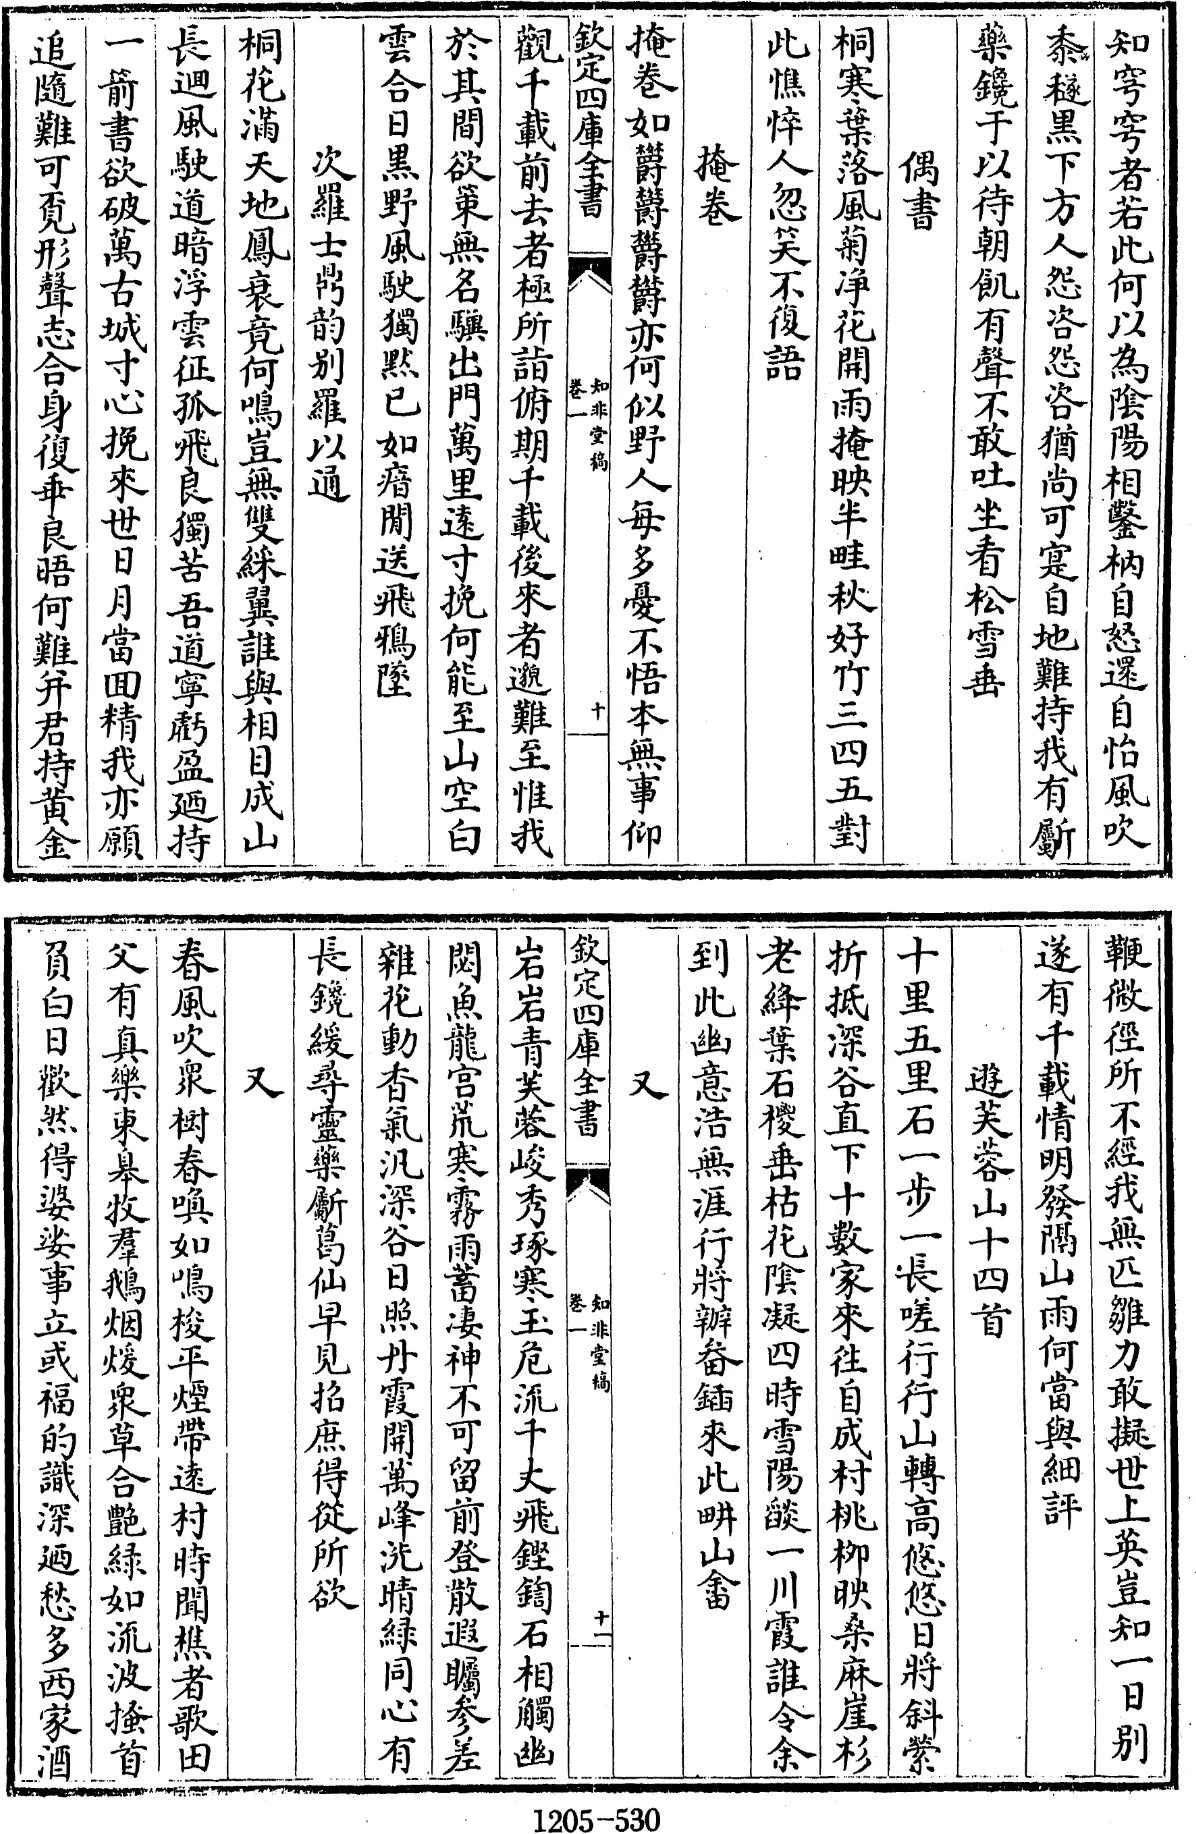 知穹穹者若此何以為陰陽相鑿枘自怒還自怡風吹
黍穟黒下方人怨咨怨咨猶尚可寔自地難持我有斸
藥鑱于以待朝飢有聲不敢吐坐看松雪垂
偶書
桐寒葉落風菊淨花開雨掩映半畦秋好竹三四五對
此憔悴人忽笑不復語
掩卷
掩卷如欝欝欝欝亦何似野人每多憂不悟本無事仰
欽定四庫全書
知非堂稿
卷一
十
觀千載前去者極所詣俯期千載後來者邈難至惟我
於其間欲策無名驥出門萬里遠寸挽何能至山空白
雲合日黒野風駛獨黙已如瘖閒送飛鴉墜
次羅士鼎韵别羅以通
桐花滿天地鳳衰竟何鳴豈無雙綵翼誰與相目成山
長迴風駛道暗浮雲征孤飛良獨苦吾道寧虧盈廼持
一箭書欲破萬古城寸心挽來世日月當囬精我亦願
追隨難可覔形聲志合身復乖良晤何難并君持黄金
鞭微徑所不經我無匹雛力敢擬世上英豈知一日别
遂有千載情明發隔山雨何當與細評
遊芙蓉山十四首
十里五里石一步一長嗟行行山轉高悠悠日將斜縈
折抵深谷直下十數家來往自成村桃柳映桑麻崖杉
老絳葉石樱垂枯花陰凝四時雪陽燄一川霞誰令余
到此幽意浩無涯行將辦畚鍤來此畊山畬
又
欽定四庫全書
知非堂稿
卷一
十一
岩岩青芙蓉峻秀琢寒玉危流千丈飛鏗鍧石相觸幽
閟魚龍宫荒寒霧雨蓄凄神不可留前登散遐矚參差
雜花動杳氣汎深谷日照丹霞開萬峰洗晴緑同心有
長鑱緩尋靈藥斸葛仙早見招庶得從所欲
又
春風吹衆樹春喚如鳴梭平煙帶遠村時聞樵者歌田
父有真樂東臯牧羣鵝烟煖衆草合艶緑如流波搔首
負白日歡然得婆娑事立或福的識深廼愁多西家酒
1205-530